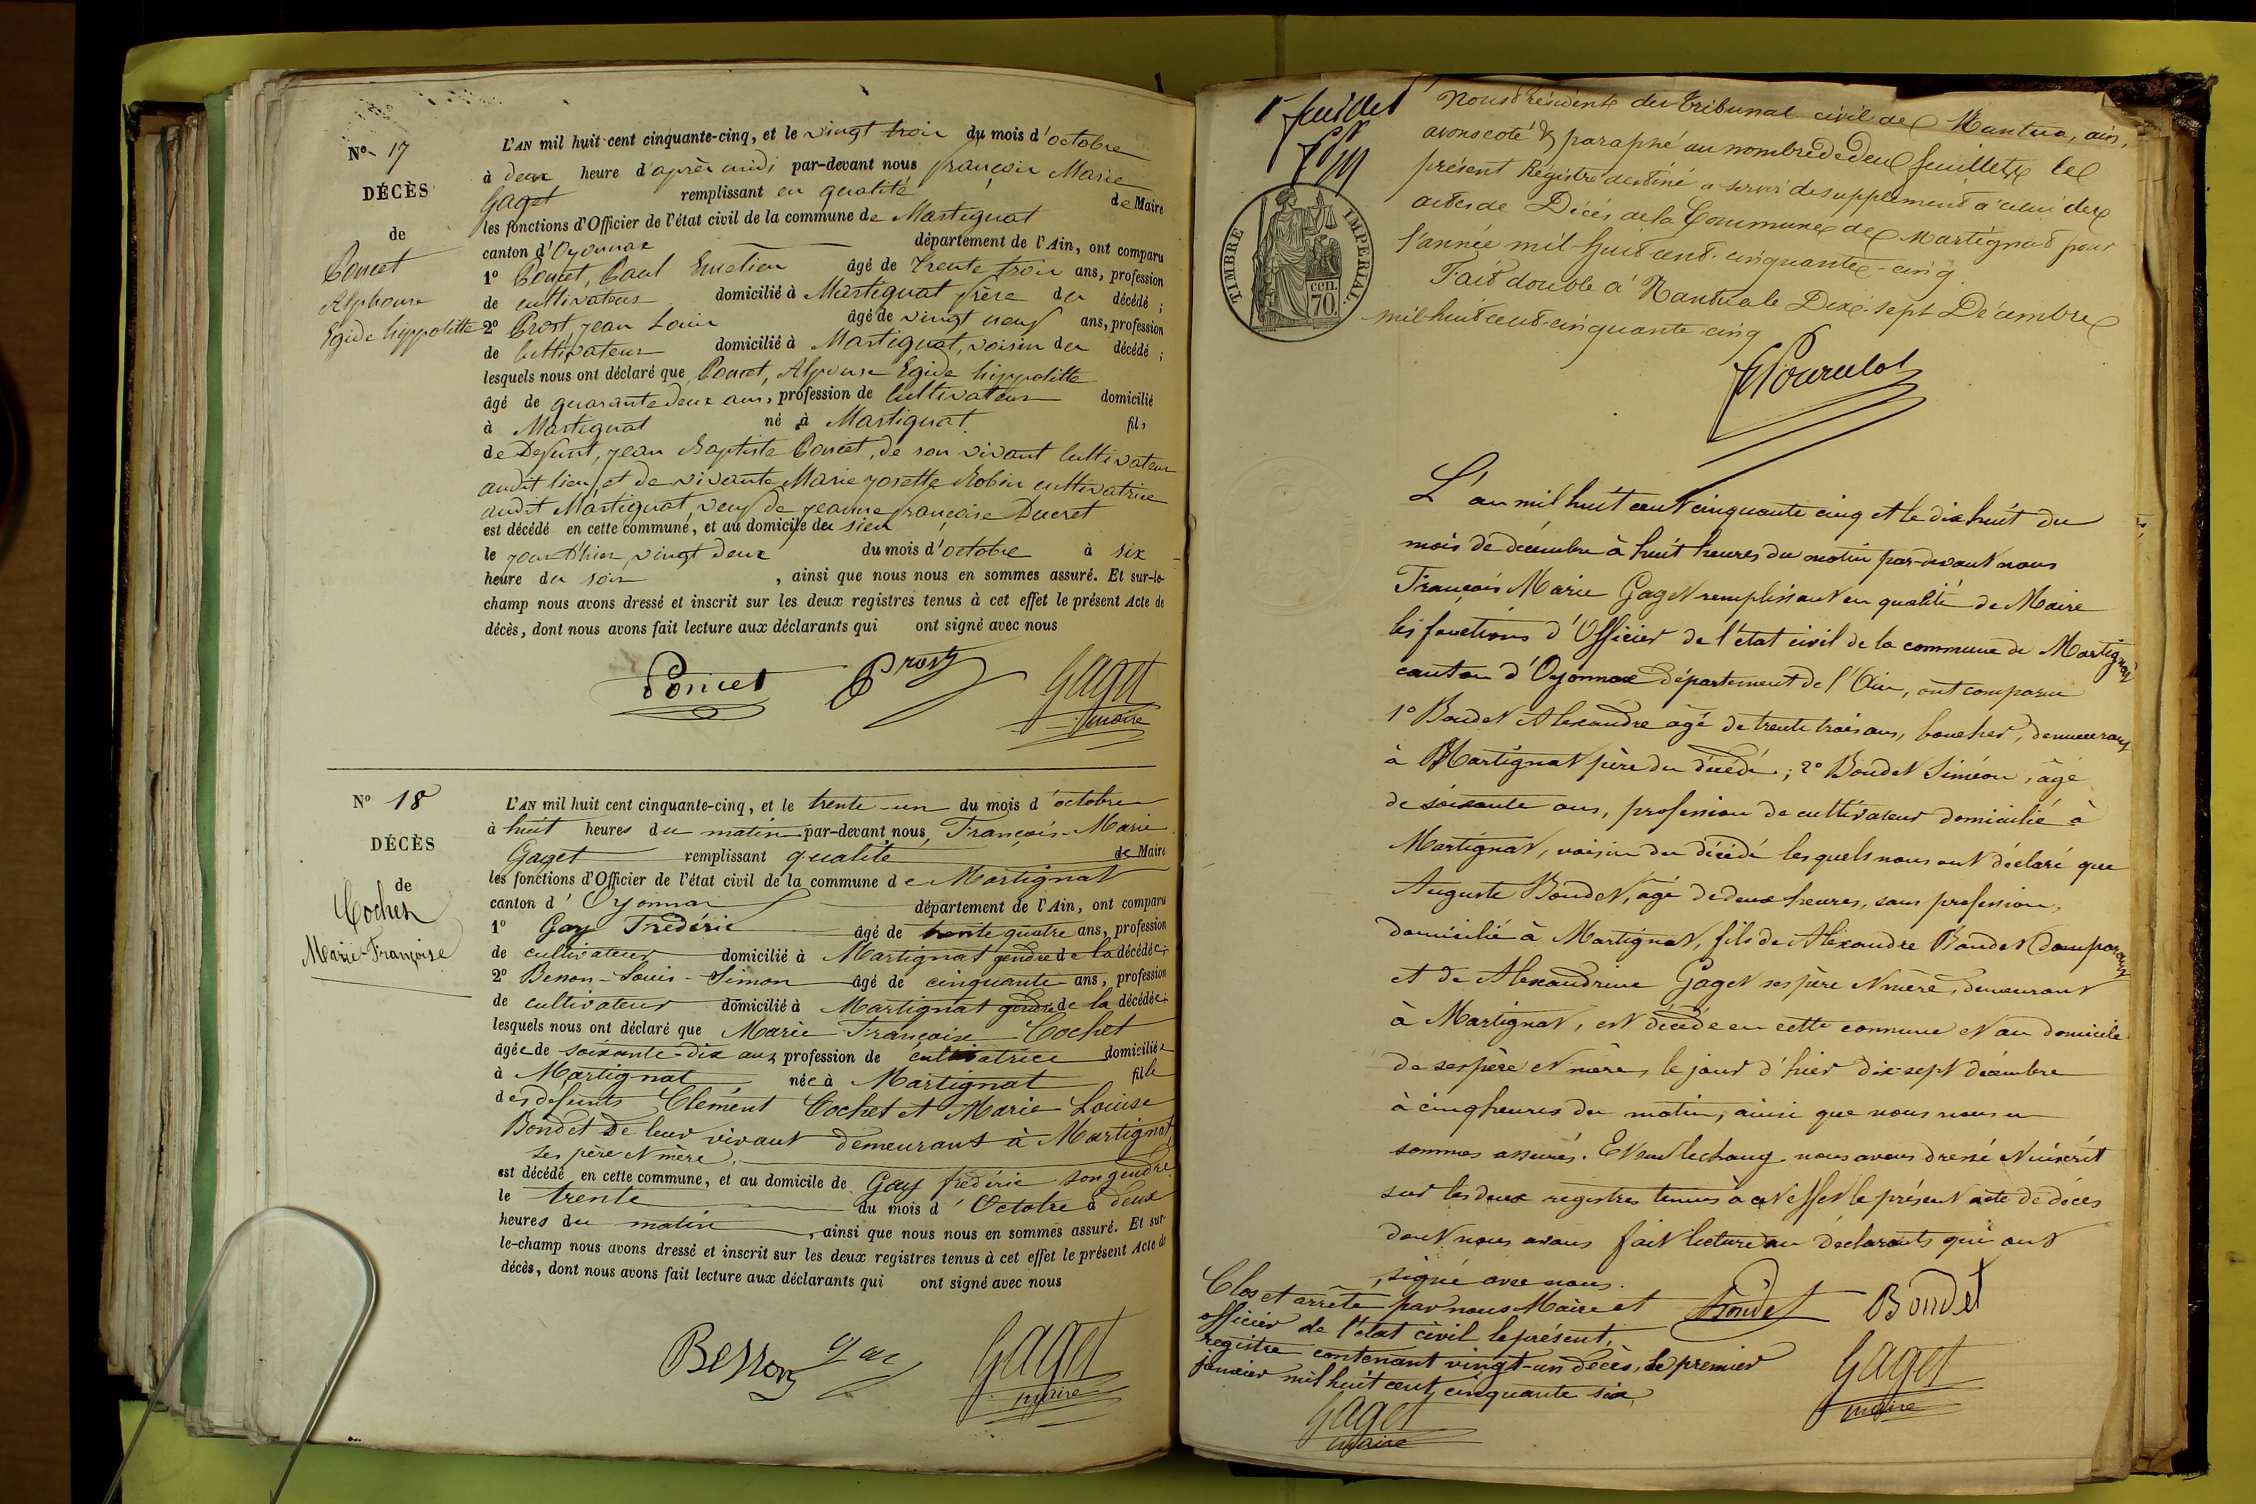 Nº 17
DÉCÈS
de
Poncet
Alphonse
Egide hippolitte
L'AN mil huit cent cinquante-cinq, et le vingt trois du mois d'octobre
à deux heure d'après midi par-devant nous françois Marie
Gaget remplissant en qualité de Maire
les fonctions d'Officier de l'état civil de la commune de Martignat
canton d'Oyonnax département de l'Ain, ont comparu
1º Poncet, Paul Emelien âgé de trente trois ans, profession
de cultivateur domicilié à Martignat frère du décédé ;
2º Prost, jean Louis âgé de vingt neuf ans, profession
de cultivateur domicilié à Martignat, voisin du décédé ;
lesquels nous ont déclaré que Poncet, Alphonse Egide hippolitte
âgé de quarante deux ans, profession de cultivateur domicilié
à Martignat né à Martignat fils
de Defunt, jean Baptiste Poncet, de son vivant cultivateur
audit lieu et de vivante Marie josette Robin cultivatrice
audit Martignat, veuf de jeanne françoise Ducret
est décédé en cette commune, et au domicile du sien
le jour d'hier, vingt deux du mois d'octobre à six
heure du soir , ainsi que nous nous en sommes assuré. Et sur-le-
champ nous avons dressé et inscrit sur les deux registres tenus à cet effet le présent Acte de
décès, dont nous avons fait lecture aux déclarants qui ont signé avec nous
Poncet Prost Gaget
maire
Nº 18
DÉCÈS
de
Cochet
Marie-Françoise
L'AN mil huit cent cinquante-cinq, et le trente-un du mois d'octobre
à huit heures du matin par-devant nous, François-Marie
Gaget remplissant qualité de Maire
les fonctions d'Officier de l'état civil de la commune de Martignat
canton d'Oyonnax département de l'Ain, ont comparu
1º Gay Frédéric âgé de trente quatre ans, profession
de cultivateur domicilié à Martignat gendre de la décédée ;
2º Besson-Louis-Simon âgé de cinquante ans, profession
de cultivateur domicilié à Martignat gendre de la décédée ;
lesquels nous ont déclaré que Marie Françoise Cochet
âgée de soixante-dix ans, profession de cultivatrice domiciliée
à Martignat née à Martignat fille
des defunts Clément Cochet et Marie Louise
Bondet de leur vivant demeurant à Martignat
ses père et mère.
est décédé en cette commune, et au domicile de Gay frédéric son gendre
le trente du mois d'Octobre à deux
heures du matin , ainsi que nous nous en sommes assuré. Et sur-
le-champ nous avons dressé et inscrit sur les deux registres tenus à cet effet le présent Acte de
décès, dont nous avons fait lecture aux déclarants qui ont signé avec nous
Besson Gay Gaget
maire
1r feuillet
TIMBRE IMPERIAL.
cen.
70.
Nous Président du Tribunal civil de Nantua, ain,
avons coté & paraphé au nombre de deux feuillets le
présent Registre destiné à servir de supplément à celui des
actes de Décès de la Commune de Martignat pour
l'année mil-huit-cent-cinquante-cinq
Fait double à Nantua le Dix-sept Décembre
mil huit cent cinquante cinq
L'an mil huit cent cinquante cinq et le dix huit du
mois de décembre à huit heures du matin par-devant nous
François Marie Gaget remplissant en qualité de Maire
les fonctions d'Officier de l'état civil de la commune de Martignat
canton d'Oyonnax département de l'Ain, ont comparu
1º Bondet Alexandre âgé de trente trois ans, boucher, demeurant
à Martignat père du décédé ; 2º Bondet Siméon, âgé
de soixante ans, profession de cultivateur domicilié à
Martignat, voisin du décédé lesquels nous ont déclaré que
Auguste Bondet, âgé de deux heures, sans profession,
domicilié à Martignat, fils de Alexandre Bondet comparant
et de Alexandrine Gaget ses père et mère, demeurant
à Martignat, est décédé en cette commune et au domicile
de ses père et mère, le jour d'hier dix-sept décembre
à cinq heures du matin, ainsi que nous nous en
sommes assurés. Et sur le champ nous avons dressé et inscrit
sur les deux registres tenus à cet effet le présent acte de décès
dont nous avons fait lecture au déclarants qui ont
signé avec nous.
Bondet Bondet
Gaget
maire
Clos et arrêté par nous Maire et
officier de l'état civil le présent,
registre contenant vingt-un décès, le premier
janvier mil huit cent cinquante six,
Gaget
maire